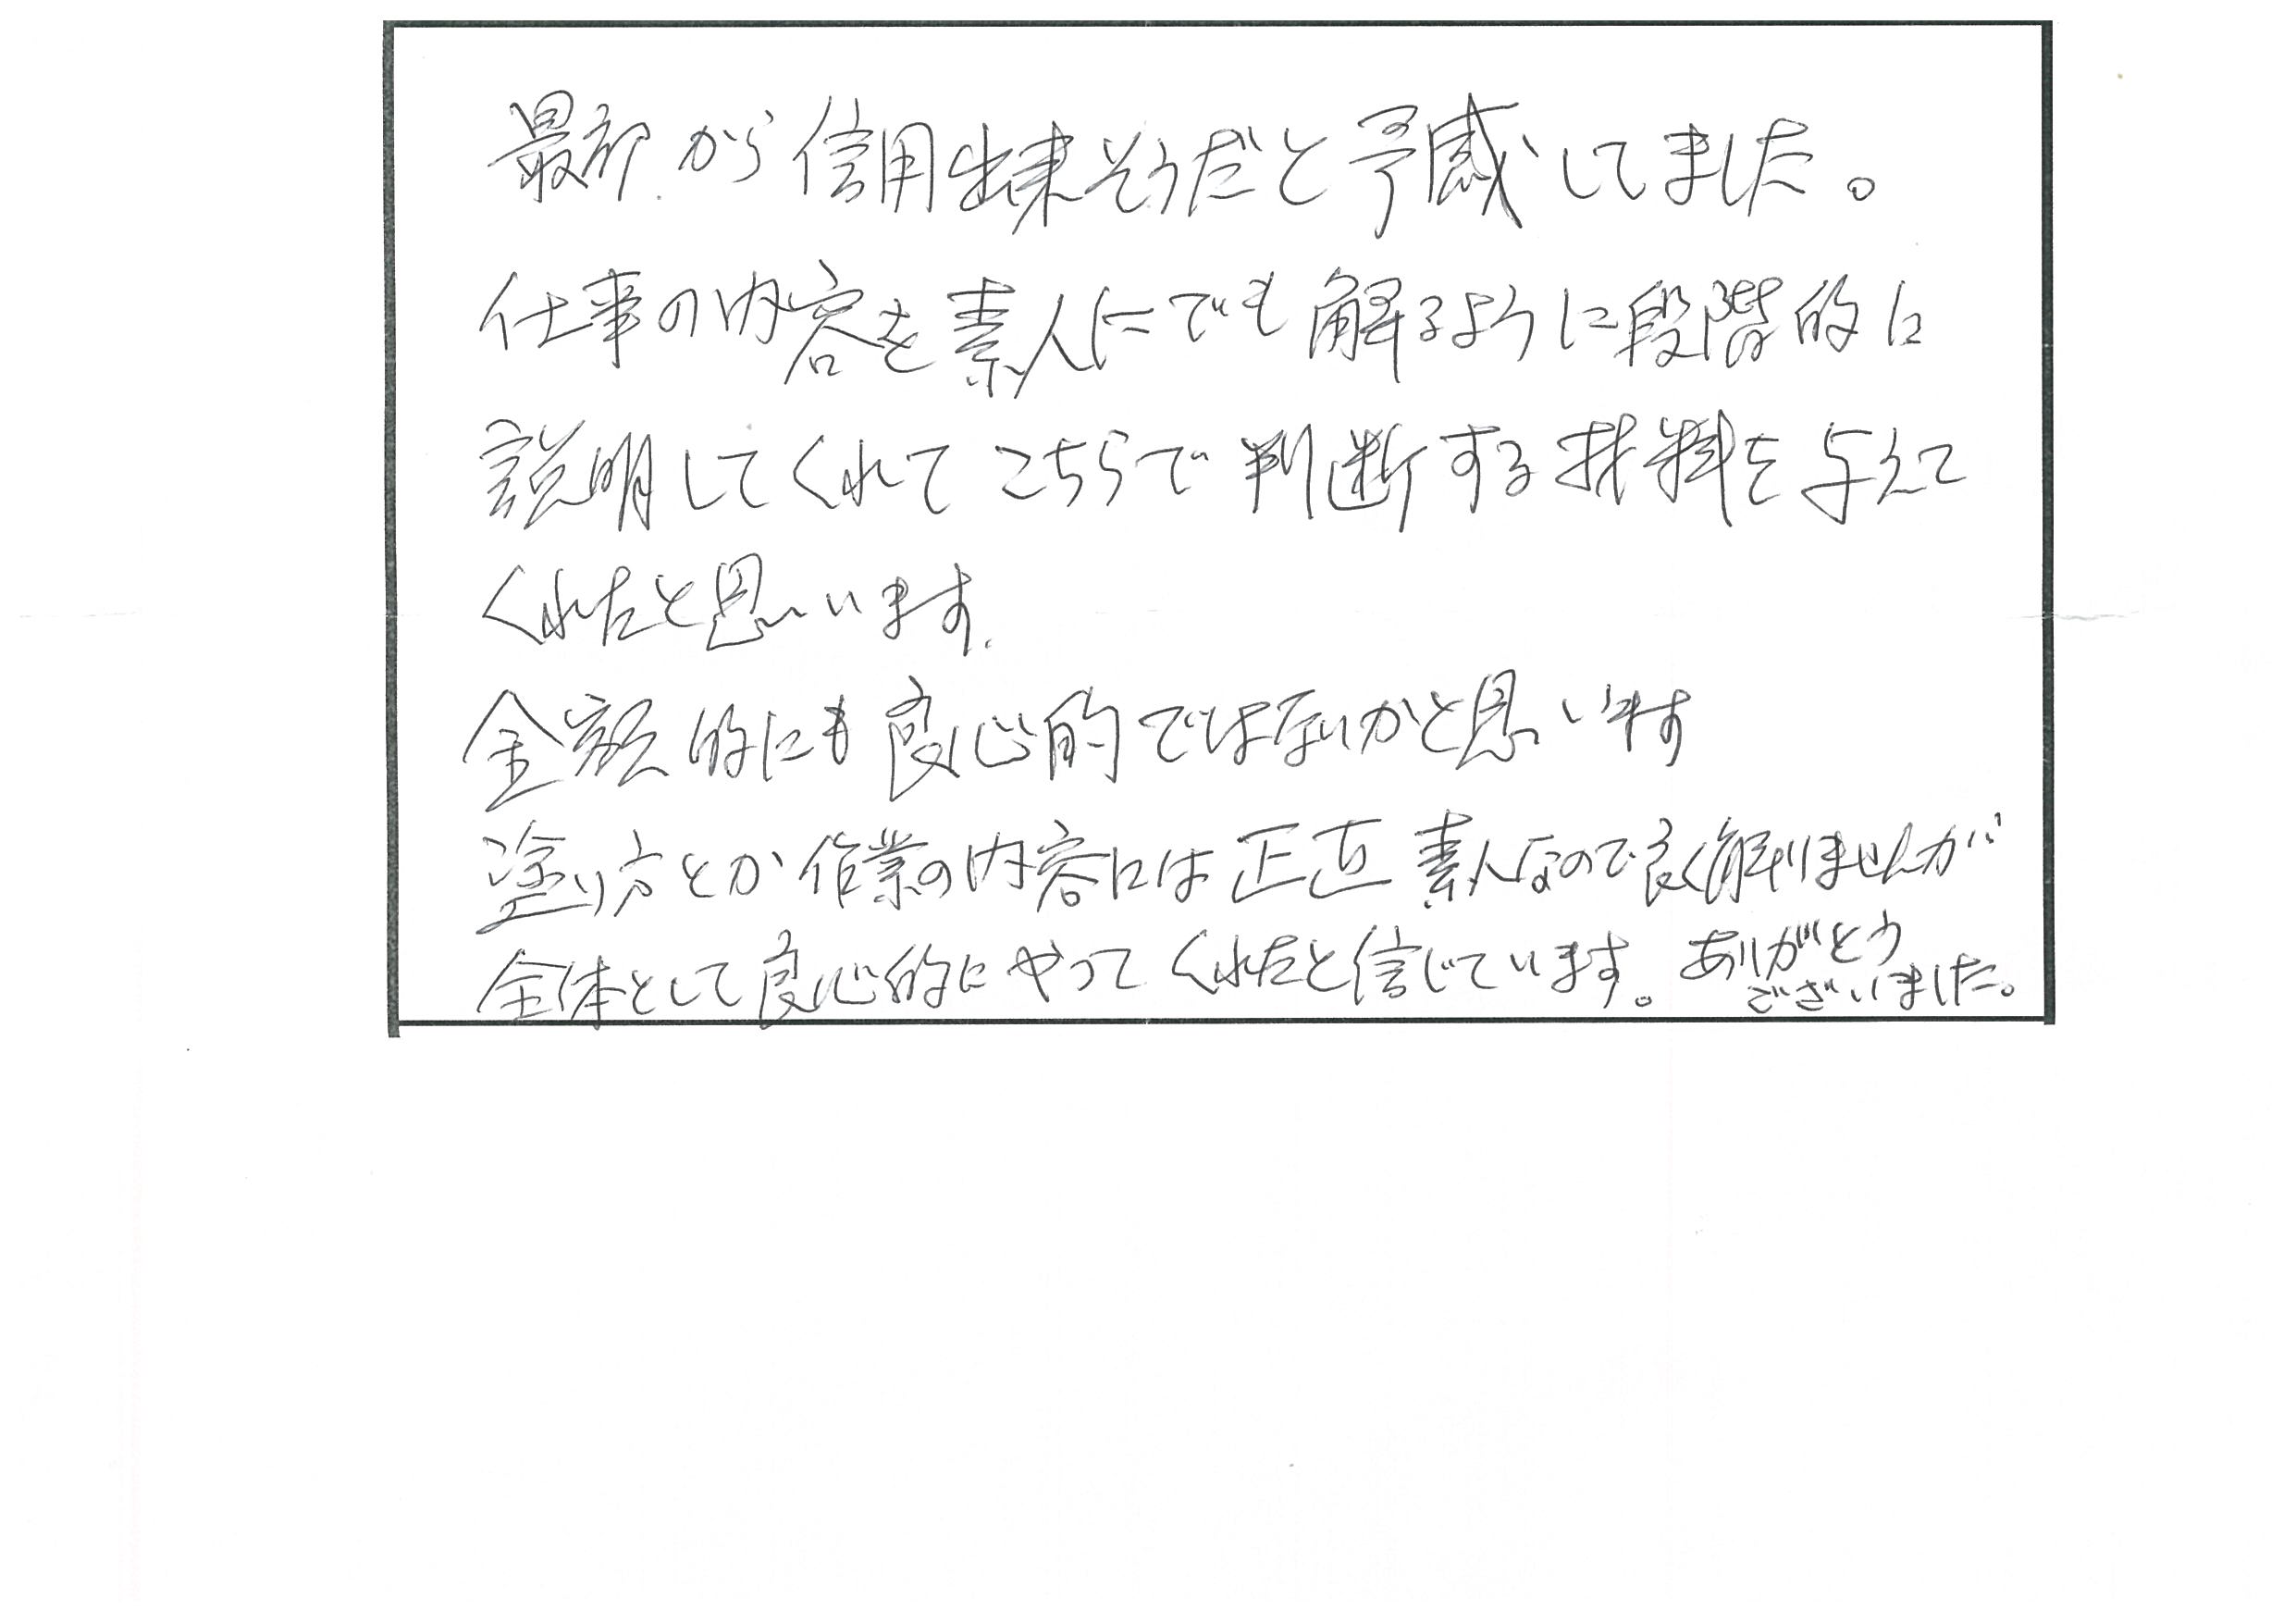 最初から信用出来そうだと予感してました。
仕事の内容を素人にでも解るように段階的に
説明してくれてこちらで判断する材料を与えて
くれたと思います.
金額的にも良心的ではないかと思います
塗り方とか作業の内容には正直素人なので良く解りませんが
全体として良心的にやってくれたと信じています。ありがとう
ございました。